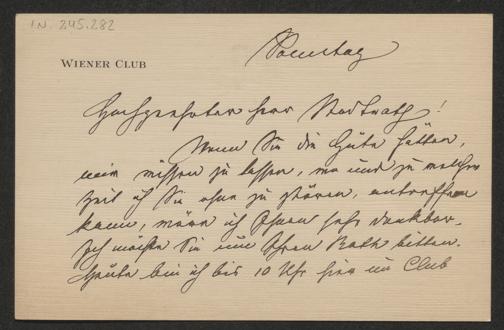 I.N. 245.282
Sonntag
WIENER CLUB
Hochgeehrter Herr Stadtrath!
Wenn Sie die Güte hätten,
mich wissen zu lassen, wo und zu welcher
Zeit ich Sie ohne zu stören, antreffen
kann, wäre ich Ihnen sehr dankbar.
Ich möchte Sie um Ihren Rath bitten.
Heute bin ich bis 10 Uhr hier im Club